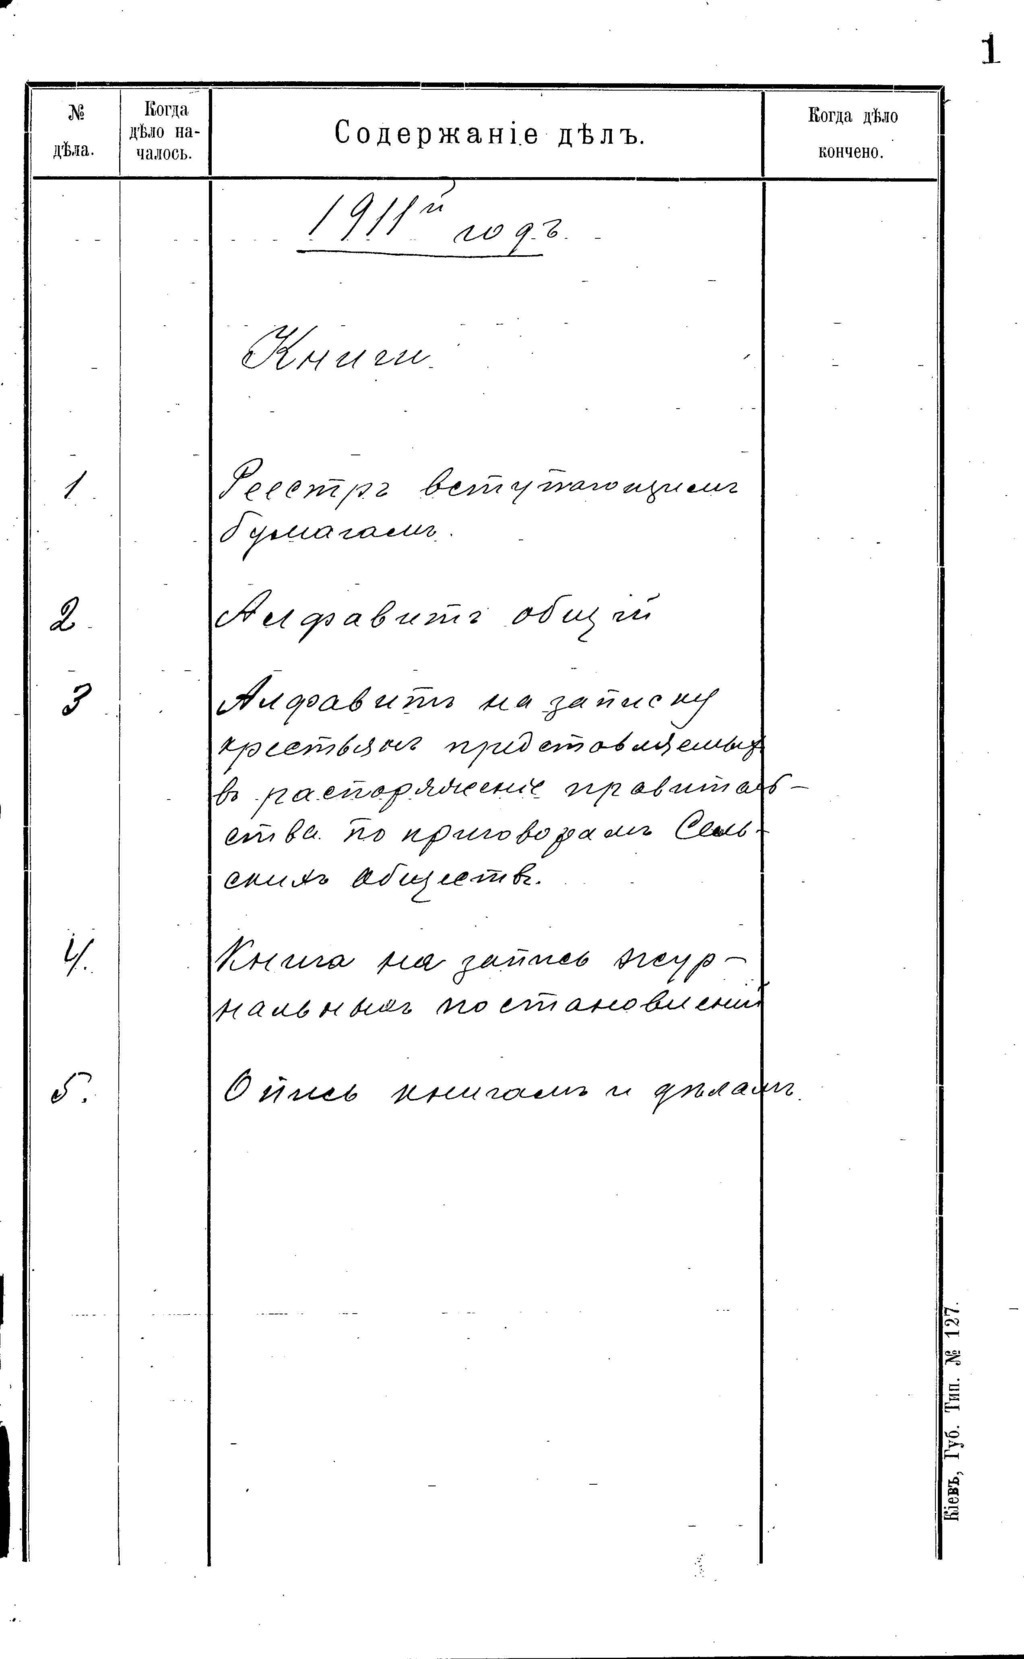 1
№ дѣла.
Когда дѣло на-
чалось.
Содержаніе дѣлъ.
Когда дѣло кончено.
1911й годъ.
Книги.
1. Реестръ вступающимъ
бумагамъ.
2. Алфавитъ общій
3. Алфавитъ на записку
крестьянъ представляемыхъ
въ распоряженіе правитель-
ства по приговорамъ Сель-
скихъ обществъ.
4. Книга на запись жур-
нальныхъ постановленій
5. Опись книгамъ и дѣламъ.
Кіевъ, Губ. Тип. № 127.